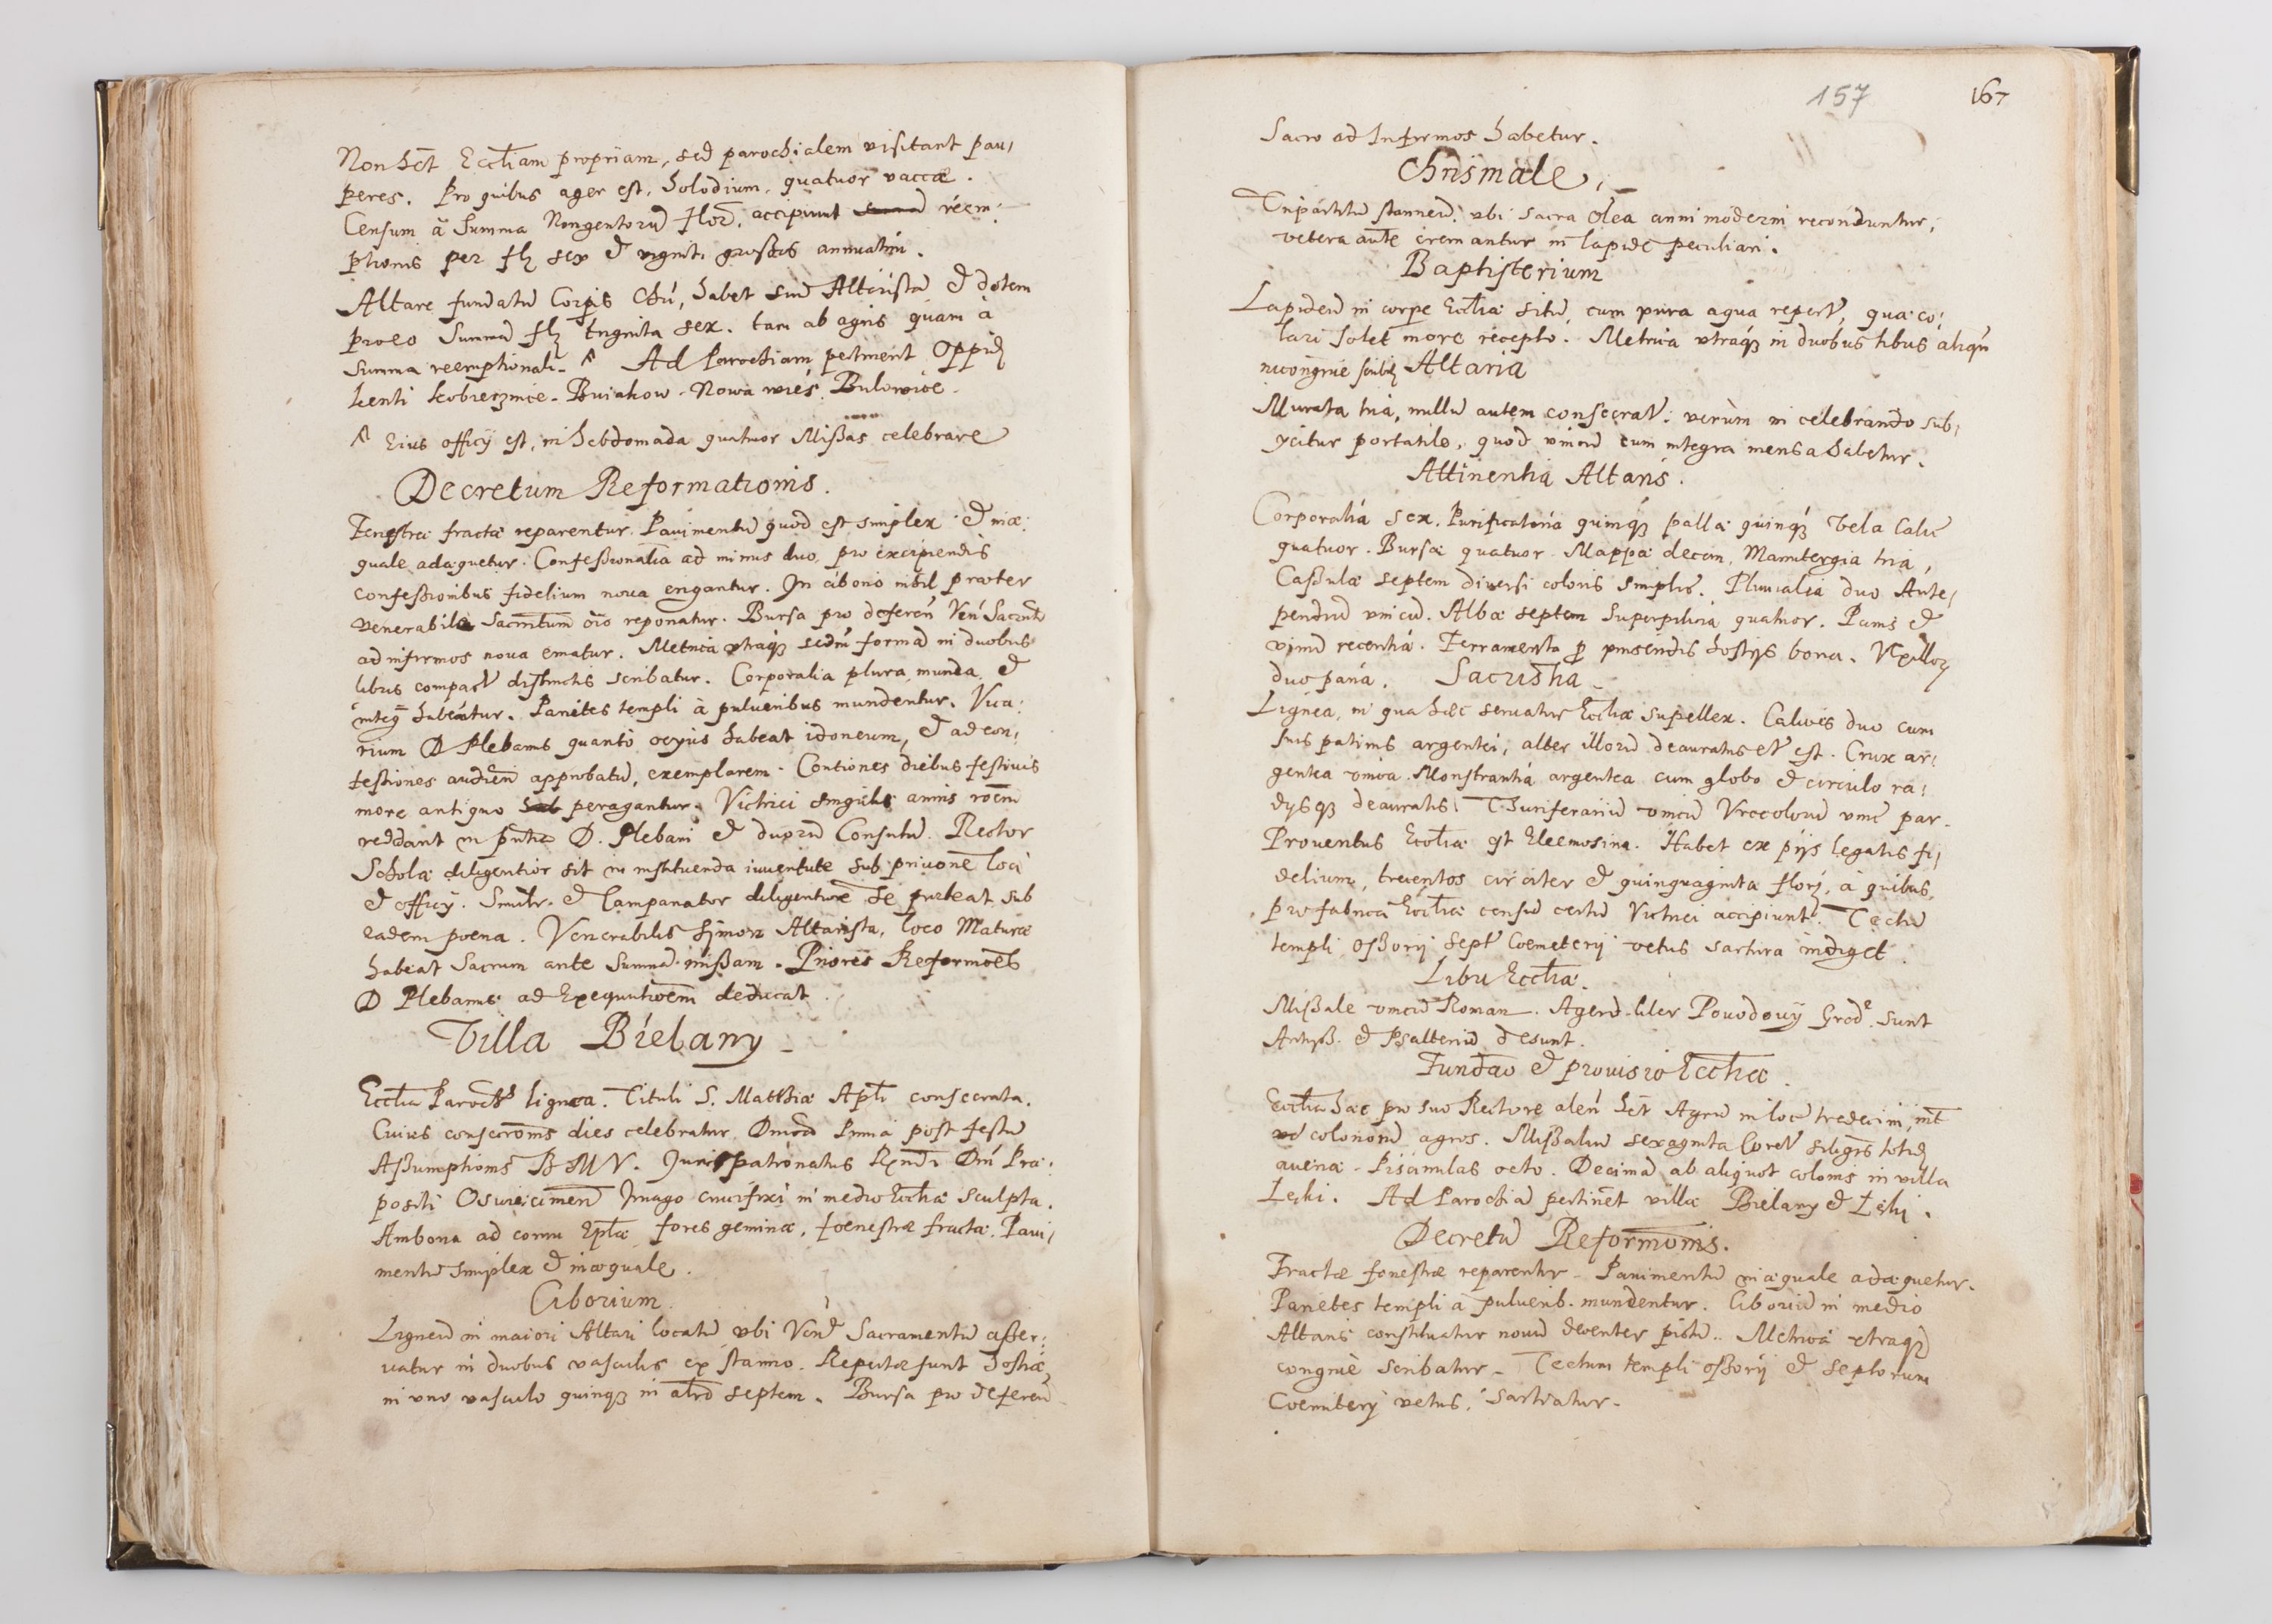 Non hēt Eccliam propriam, sed parochialem visitant pau,
peres. Pro quibus ager est, holodium, quatuor vaccæ.
Censum à Summa Nongentorū Flor. accipiunt reem:
ptionis per fl sex et viginti grossos annuatim.
Altare fundatū Corpis Chri, habet suū Altaristā et dotem
pro eo Summā fl triginta sex. tam ab agris quàm à
summa reemptionali. ^ Ad Parochiam pertinent Oppid
Kenti Kobiernice. Buiakow. Nowa wies. Bulowice.
^ Eius officij est, in hebdomada quatuor Missas celebrare
Decretum Reformationis.
Fenestræ fractæ reparentur. Pavimentū quod est simplex et inæ:
quale adæquetur. Confessionalia ad minus duo, pro excipiendis
confessionibus fidelium noua erigantur. In ciborio nihil præter
venerabile Sacrmtum oīo reponatur. Bursa pro deferen Ven Sacrmto
ad infirmos noua ematur. Metrica vtraq; secdm formā in duobus
libris compact distinctis scribatur. Corporalia plura, munda et
integ habeantur. Parietes templi à pulueribus mundentur. Vica:
rium D Plebanus quantò ocyus habeat idoneum, et ad con:
fessiones audien approbatū, exemplarem. Contiones diebus festiuis
more antiquo peragantur. Victrici singulis annis roem
reddant in pntia D. Plebani et duorū Consulū. Rector
Scholæ diligentior sit in instituenda iuuentute sub priuone loci
et officij. Similr. et Campanator diligentiorē se præbeat sub
eadem poena. Venerabilis Simon Altarista, loco Maturæ
habeat Sacrum ante Summā missam. Priores Reformoēs
D Plebanus ad Exequutioēm deducat.
Villa Bielany
Ecclia Paroch lignea. Tituli S. Matthiæ Apli consecrata.
Cuius consecroīs dies celebratur Dnica Prima post festū
Assumptionis B M V. Juris patronatus Rndi Dni Præ:
positi Osuiecimen Imago crucifixi in medio Eccliæ sculpta.
Ambona ad cornu Eplæ fores geminæ, foenestræ fractæ. Paui,
mentū simplex et inæquale.
Ciborium
Ligneū in maiori Altari locatū vbi Vend Sacramentū asser:
uatur in duobus vasculis ex stanno. Repertæ sunt hostiæ,
in vno vasculo quinq; in altro septem. Bursa pro deferen
157 167
Sacro ad Infirmos habetur.
Chrismale,
Tripartitū stanneū, vbi sacra Olea anni moderni reconduntur,
vetera autē cremantur in lapide peculiari.
Baptisterium
Lapideū in corpe Eccliæ sitū, cum pura aqua repert, quæ co:
lari solet more recepto. Metrica vtráq; in duobus libris aliqn
incongrue scribit Altaria
Murata tria, nullū autem consecrat: verùm in celebrando sub,
ijcitur portatile, quod vnicū cum integra mensa habetur.
Attinentia Altaris.
Corporalia sex. Purificatoria quinq; pallæ quinq; Vela Calic
quatuor. Bursæ quatuor. Mappæ decem, Manutergia tria,
Cassulæ septem diuersi coloris simplic. Pluuialia duo Ante,
pendiū vnicū. Albæ septem Superpilicia quatuor. Panis et
vinū recentia. Ferramenta p pinsendis hostijs bona. Vexillor
duo paria. Sacristia
Lignea, in qua hæc seruatur Eccliæ supellex. Calices duo cum
suis patinis argentei, alter illorū deauratus et est. Crux ar,
gentea vnica. Monstrantia argentea cum globo et circulo ra:
dijsq; deauratis. Thuriferariū vnicū Vrceolorū vnic par.
Prouentus Eccliæ est Eleemosina. Habet ex pijs legatis fi,
delium, trecentos circiter et quinquaginta flor, à quibus,
pro fabrica Eccliæ censū certū Victrici accipiunt. Tectū
templi, Ossorij sept Coemeterij vetus sartura indiget.
Libri Eccliæ.
Missale vnicū Roman. Agend liber Pouodouij Grad. sunt
Antiph. et Psalteriū desunt.
Fundāo et prouisio Eccliæ.
Ecclia hæc pro suo Rectore alen hēt Agrū in loc tredecim, int
colonorū agros. Missaliū sexaginta Coret siliginis totid
auenæ. Piscinulas octo. Decimā ab aliquot colonis in villa
Lęki. Ad Parochiā pertinet villæ Bielany et Lęki.
Decretū Reformonis.
Fractæ fenestræ reparentur. Pauimentū inæquale adæquetur.
Parietes templi à puluerib. mundentur. Ciboriū in medio
Altaris constituatur nouū decenter pictū. Metrica vtraq;
congruè scribatur. Tectum templi ossorij et septorum
Coemiterij vetus, sartiatur.